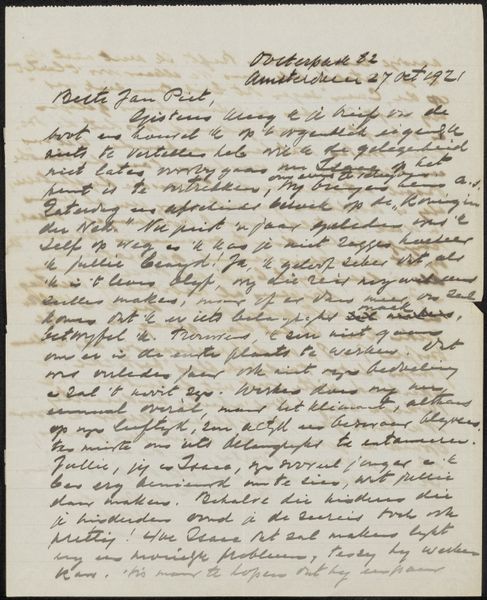 Oosterpark 82
Amsterdam 27 Oct 1921
Beste Jan Piet,
Gisteren kreeg ik je brief van de
boot en hoewel ik op 't oogenblik eigenlijk
niets te vertellen heb wil ik de gelegenheid
niet laten voorbij gaan nu Isaac op het
punt is te vertrekken, om je te
Zaterdag een afscheids bezoek op de "Koningin
der Ned." Nu juist 'n jaar geleden was 'k
zelf op weg en 'k kan je niet zeggen hoezeer
'k jullie benijd! Ja, 'k geloof zeker dat, als
'k in 't leven blijf, wij die reis nog wel eens
zullen maken, maar of er dan meer van zal
komen dat 'k er iets belangrijks zal maken,
betwijfel ik. Trouwens, 'k zou niet gaan
om er in de eerste plaats te werken. Dat
was verleden jaar ook niet mijn bedoeling
en zal 't nooit zijn. Werken doen wij nu
eenmaal overal, maar het klimaat, althans
op mijn leeftijd, zou altijd een bezwaar blijven,
ten minste om iets belangrijks te entameeren.
Jullie, jij en Isaac, zijn zooveel jonger en 'k
ben erg benieuwd om te zien, wat jullie
daar maken. Behalve die hindernis die
je hinderden vond je de zeereis toch ook
prettig! Hoe Isaac dat zal maken lijkt
mij een moeilijk probleem, tenzij hij werken
kan. 'tis maar te hopen dat hij een paar